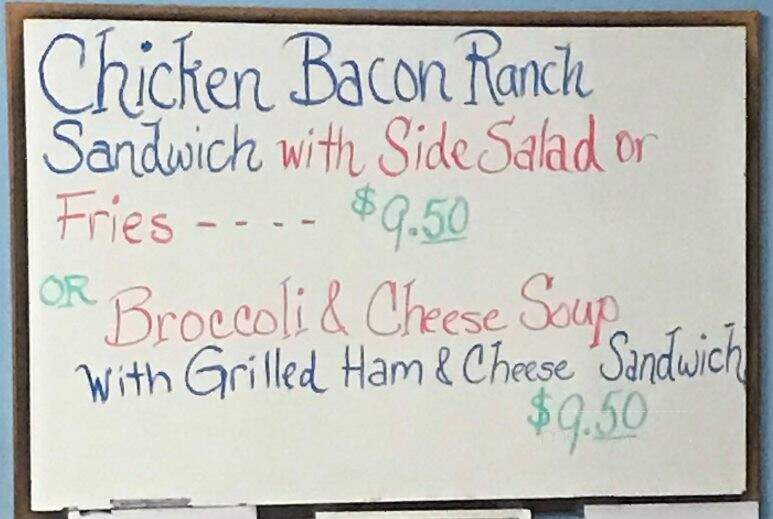 Chicken Bacon Ranch
Sandwich with Side Salad or
Fries ---- $9.50
OR Broccoli & Cheese Soup
with Grilled Ham & Cheese Sandwich
$9.50